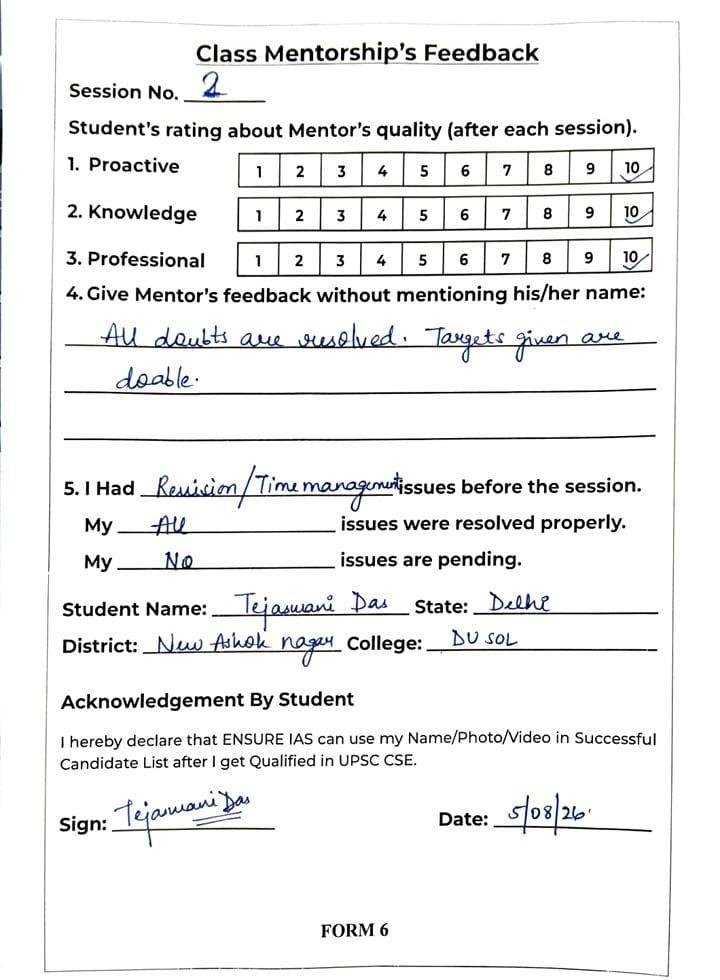 Class Mentorship's Feedback
Session No. 2
Student's rating about Mentor's quality (after each session).
1. Proactive 1 2 3 4 5 6 7 8 9 10
2. Knowledge 1 2 3 4 5 6 7 8 9 10
3. Professional 1 2 3 4 5 6 7 8 9 10
4. Give Mentor's feedback without mentioning his/her name:
All doubts are resolved. Targets given are
doable.
5. I Had Revision/Time management issues before the session.
My All issues were resolved properly.
My No issues are pending.
Student Name: Tejaswani Das State: Delhi
District: New Ashok nagar College: DU SOL
Acknowledgement By Student
I hereby declare that ENSURE IAS can use my Name/Photo/Video in Successful
Candidate List after I get Qualified in UPSC CSE.
Sign: Tejaswani Das Date: 5/08/26
FORM 6